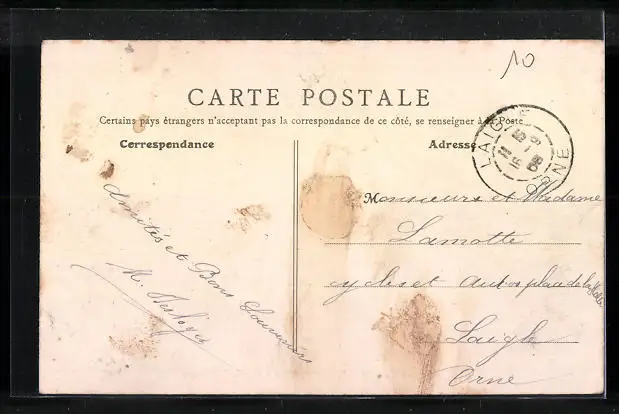 10
CARTE POSTALE
Certains pays étrangers n'acceptant pas la correspondance de ce côté, se renseigner à la Poste
Correspondance
Adresse
LAIGLE
ORNE
Monsieurs et Madame
Lamotte
cycles et Autos place de la Halle
Laigle
Orne
Amitiés et Bons Souvenirs
M.